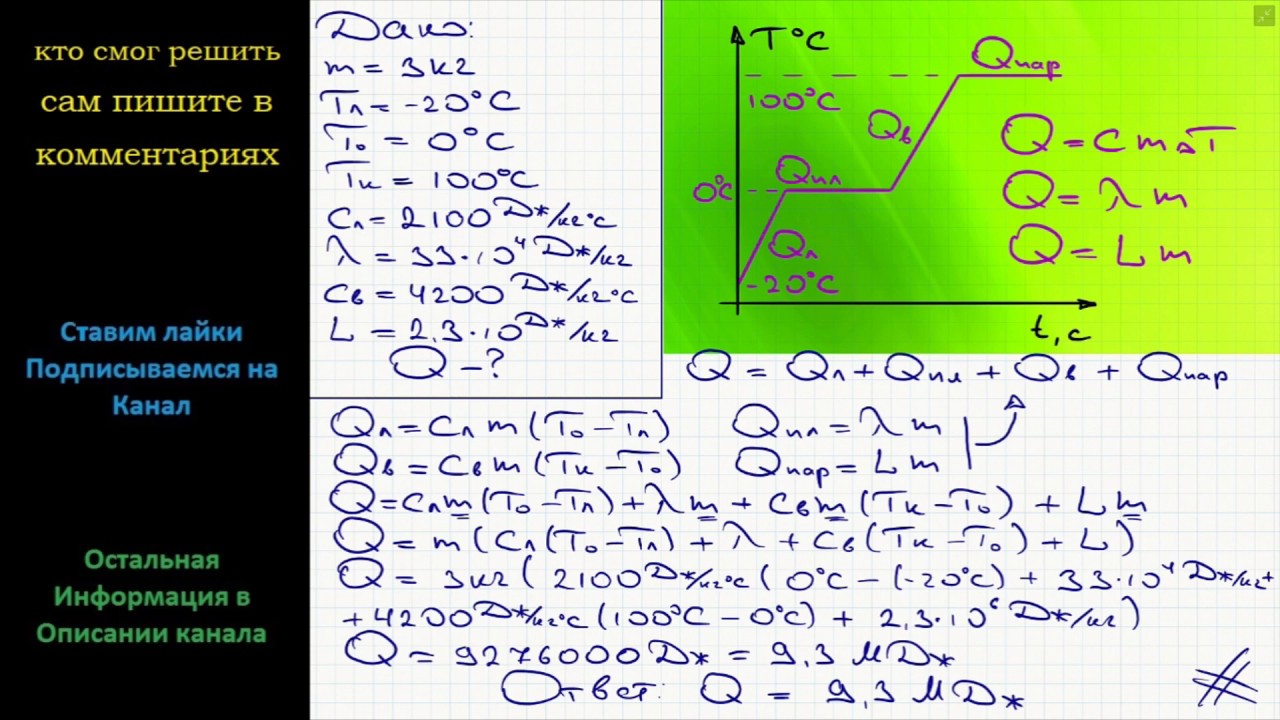 кто смог решить
сам пишите в
комментариях
Ставим лайки
Подписываемся на
Канал
Остальная
Информация в
Описании канала
Дано:
m = 3 кг
Tл = -20°C
T₀ = 0°C
Tк = 100°C
Cл = 2100 Дж/кг°C
λ = 33·10⁴ Дж/кг
Cв = 4200 Дж/кг°C
L = 2,3·10 Дж/кг
Q – ?
T°C
100°C
0°C
-20°C
Qпар
Qв
Qпл
Qл
t, c
Q = C m ΔT
Q = λ m
Q = L m
Q = Qл + Qпл + Qв + Qпар
Qл = Cл m (T₀ – Tл) Qпл = λ m
Qв = Cв m (Tк – T₀) Qпар = L m
Q = Cл m (T₀ – Tл) + λ m + Cв m (Tк – T₀) + L m
Q = m (Cл (T₀ – Tл) + λ + Cв (Tк – T₀) + L)
Q = 3 кг ( 2100 Дж/кг°C ( 0°C – (-20°C) + 33·10⁴ Дж/кг +
+ 4200 Дж/кг°C (100°C – 0°C) + 2,3·10⁶ Дж/кг )
Q = 9276000 Дж = 9,3 МДж
Ответ: Q = 9,3 МДж